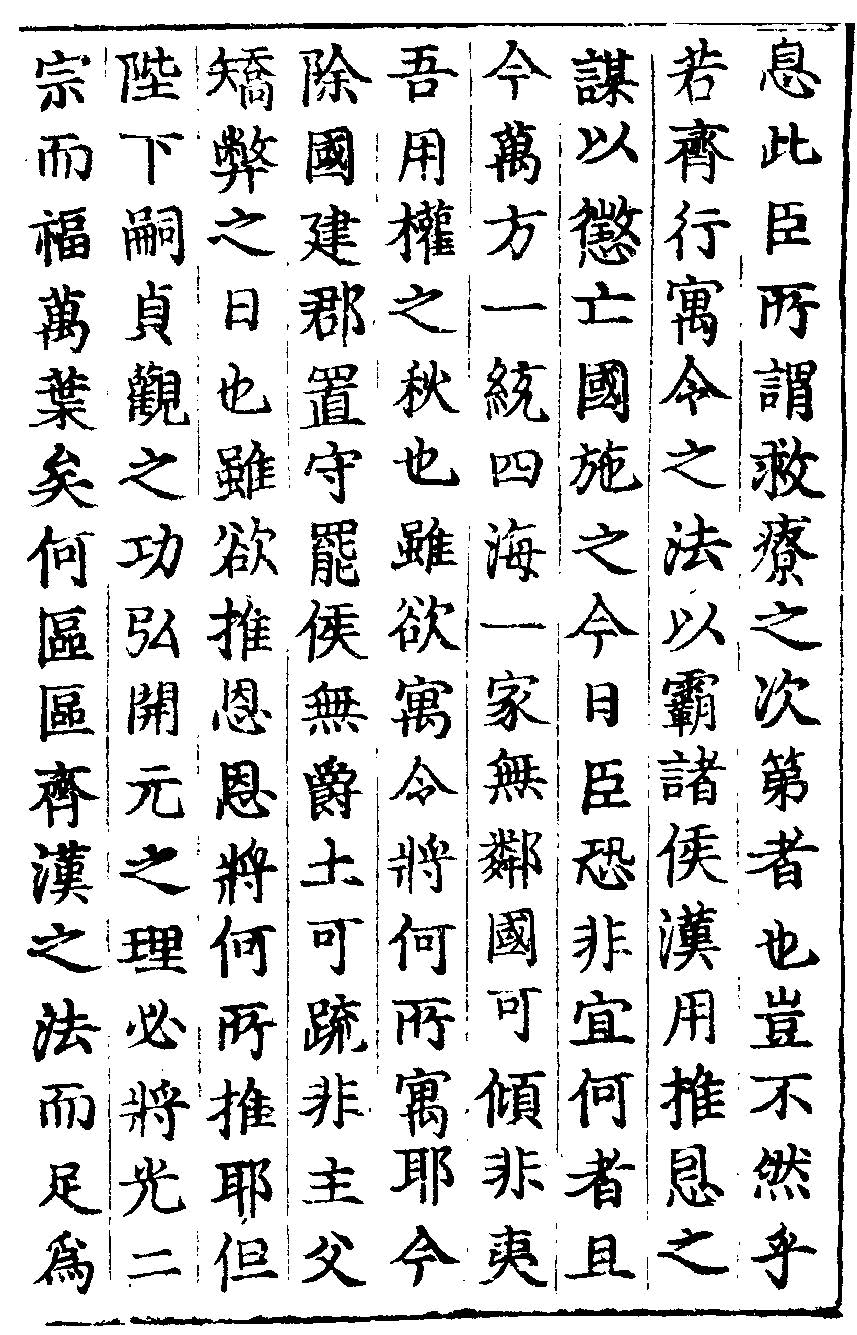 息此臣所謂救療之次第者也豈不然乎
若齊行寓令之法以霸諸侯漢用推恩之
謀以懲亡國施之今日臣恐非宜何者且
今萬方一統四海一家無鄰國可傾非夷
吾用權之秋也雖欲寓令將何所寓耶今
除國建郡置守罷侯無爵土可疏非主父
矯弊之日也雖欲推恩恩將何所推耶但
陛下嗣貞觀之功弘開元之理必將光二
宗而福萬葉矣何區區齊漢之法而足爲